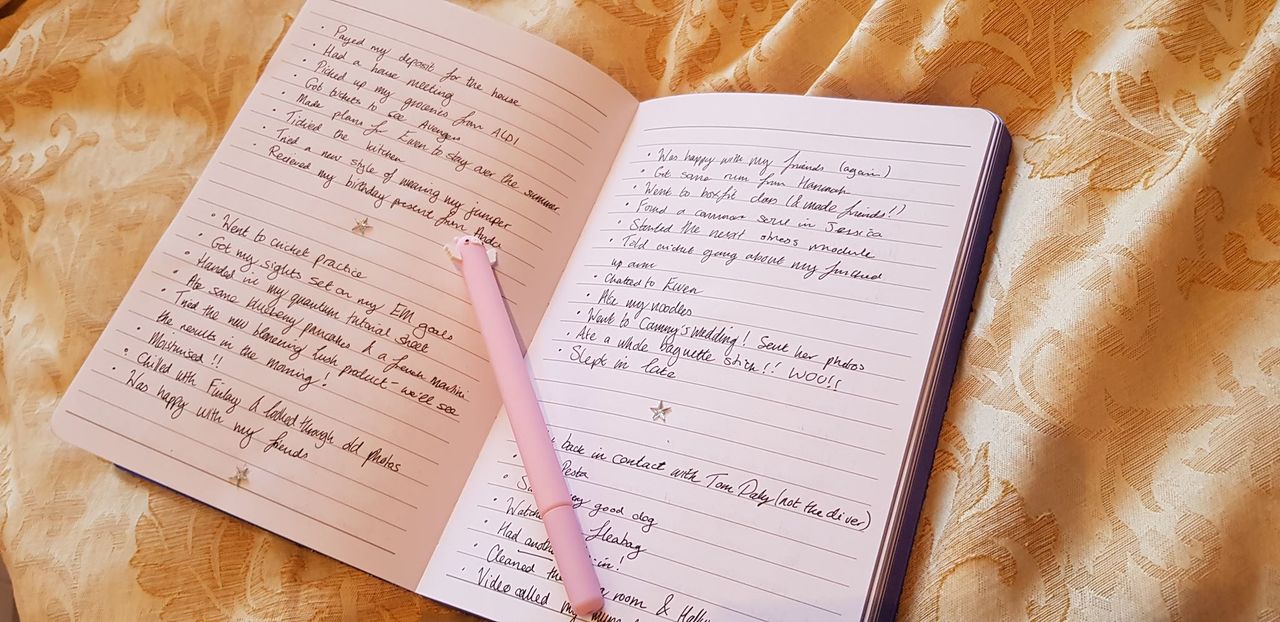 • Payed my deposit for the house
• Had a house meeting
• Picked up my groceries from ALDI
• Got tickets to see Avengers
• Made plans for Ewen to stay over the summer
• Tidied the kitchen
• Tried a new style of wearing my jumper
• Received my birthday present from
• Went to cricket practice
• Got my sights set on my EM goals
• Handed in my quantum tutorial sheet
• Ate some blueberry pancakes & a french martini
• Tried the new blemering lush product - we'll see
the results in the morning!
• Moisturised !!
• Chilled with Finlay & looked through old photos
• Was happy with my friends
• Was happy with my friends (again)
• Got some rum from Hannah
• Went to boxfit class (& made friends!!)
• Found a common serve in Jessica
• Started the next stress module
• Told cricket going about my fucked
up arm
• Chatted to Ewen
• Ate my noodles
• Went to Cammy's wedding! Sent her photos
• Ate a whole baguette stick!! WOW!!
• Slept in late
back in contact with Tom Daley (not the diver)
Pesta
very good dog
Fleabag
• Had
• Cleaned room &
• Video called my